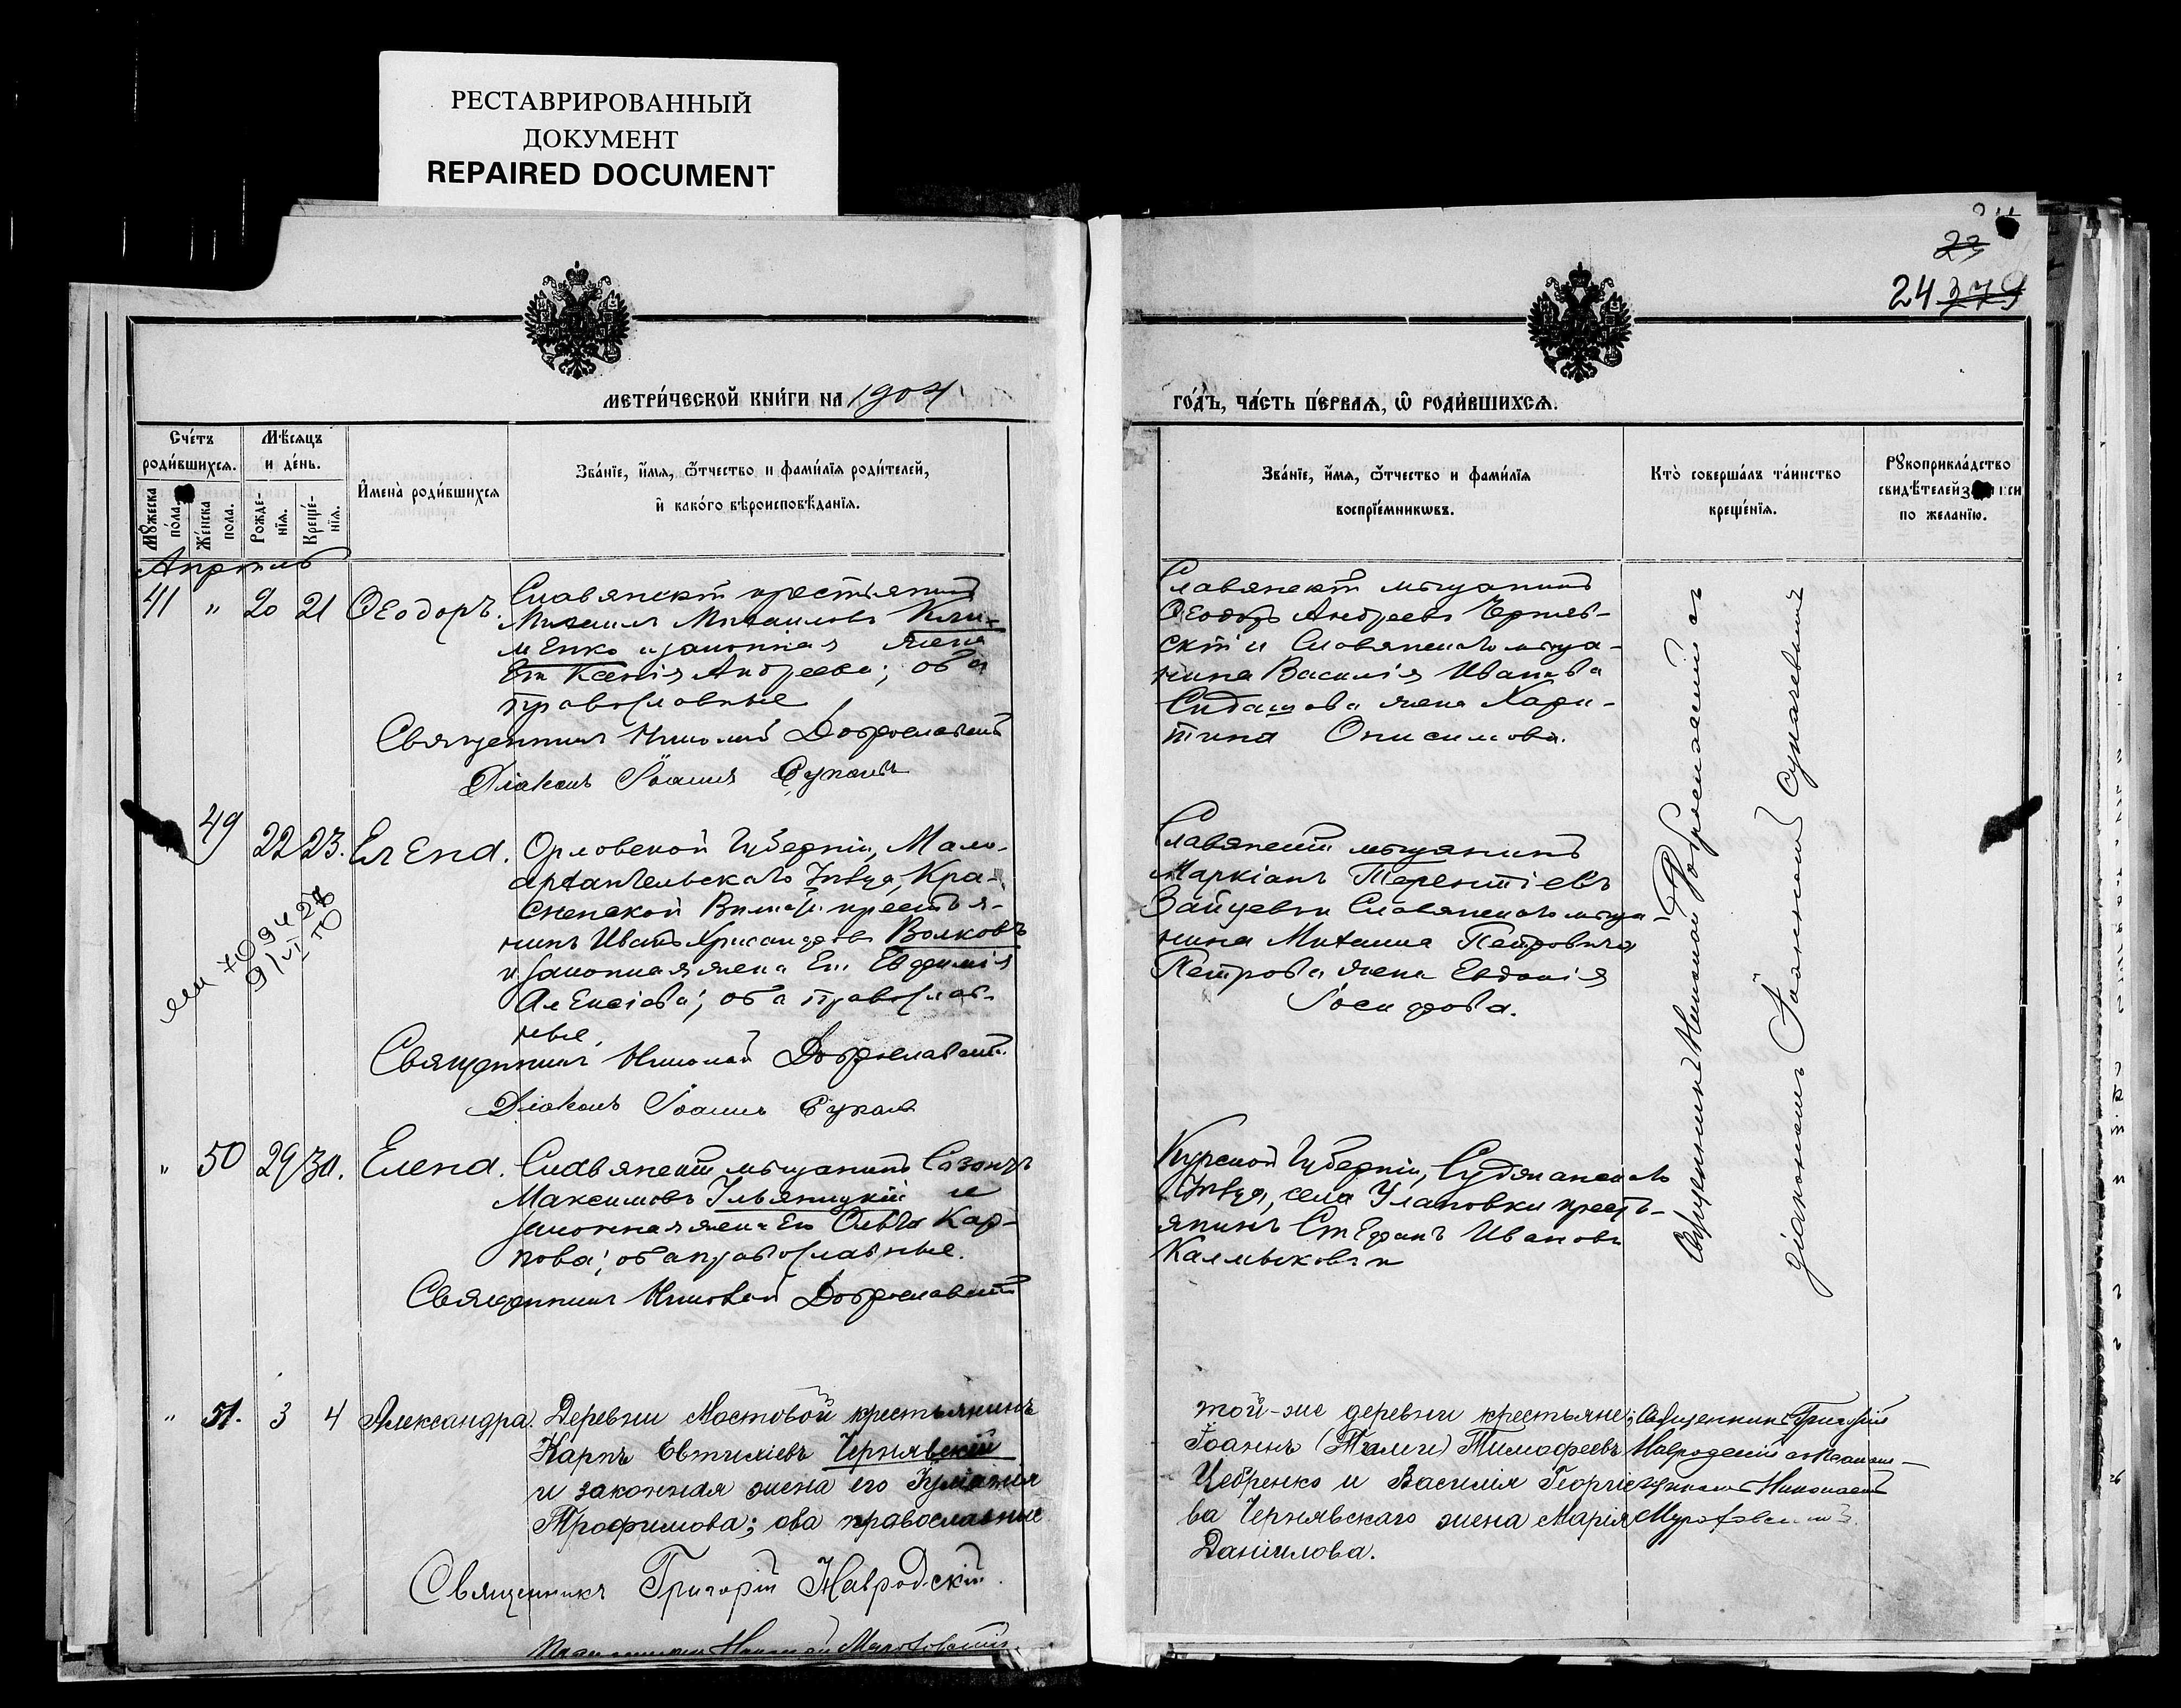 РЕСТАВРИРОВАННЫЙ
ДОКУМЕНТ
REPAIRED DOCUMENT
23
24 379
МЕТРИ́ЧЕСКОЙ КНИ́ГИ НА 1904
ГО́ДЪ, ЧА́СТЬ ПЕ́РВАѦ, Ѿ РОДИ́ВШИХСѦ.
Сче́тъ роди́вшихсѧ.
Мꙋ́жеска по́ла.
Же́нска пола.
Мѣ́сѧцъ и де́нь.
Рожде-нїѧ.
Креще́-нїѧ.
И҆мена̀ роди́вшихсѧ
Зва́нїе, и҆́мѧ, ѻ҆́тчество и фами́лїѧ роди́телей,
и҆ како́го вѣроисповѣ́данїѧ.
Зва́нїе, и҆́мѧ, ѻ҆́тчество и фами́лїѧ
воспрїе́мникѡвъ.
Кто̀ соверша́лъ та́инство
креще́нїѧ.
Рꙋкоприкла́дство
свидѣ́телей
по жела́нїю.
Апрѣль
41 " 20 21 Ѳеодоръ.
Славянскій крестьянинъ
Михаилъ Михаиловъ Кли-
менко и законная жена
его Ксенія Андреева; оба
православные
Священникъ Николай Доброславскій
Діаконъ Іоаннъ
Славянскій мѣщанинъ
Ѳеодоръ Андреевъ Черняв-
скій и Славянскаго мѣща-
нина Василія Иванова
жена Хари-
тина Онисимова.
49 22 23. Елена.
Орловской Губерніи, Мало-
архангельскаго Уѣзда, Кра-
сненской Волости крестья-
нинъ Иванъ Хрисанфовъ Волковъ
и законная жена его Евфимія
Алексіева; оба православ-
ные.
Священникъ Николай Доброславскій
Діаконъ Іоаннъ
Славянскій мѣщанинъ
Маркіанъ Терентіевъ
Зайцевъ и Славянскаго мѣща-
нина Михаила Петровича
Петрова жена Евдокія
Іосифова.
" 50 29 30. Елена.
Славянскій мѣщанинъ Созонтъ
Максимовъ Ильяницкій и
законная жена его Ольга Кар-
пова; оба православные.
Священникъ Николай Доброславскій
Курской Губерніи, Суджанскаго
Уѣзда, села Улановки кресть-
янинъ Стефанъ Ивановъ
Калмыковъ
Священникъ Николай Доброславскій съ
діакономъ Іоанномъ
" 51. 3 4 Александра.
Деревни Мостовой крестьянинъ
Карпъ Евтихіевъ Чернявскій
и законная жена его
Трофимова; оба православные
Священникъ Григорій Навродскій.
той-же деревни крестьяне:
Іоаннъ Тимофеевъ
Цебренко и Василія Георгіе-
ва Чернявскаго жена Марія
Даніилова.
Священникъ Григорій
Навродскій съ Псалом-
щикомъ Николаемъ